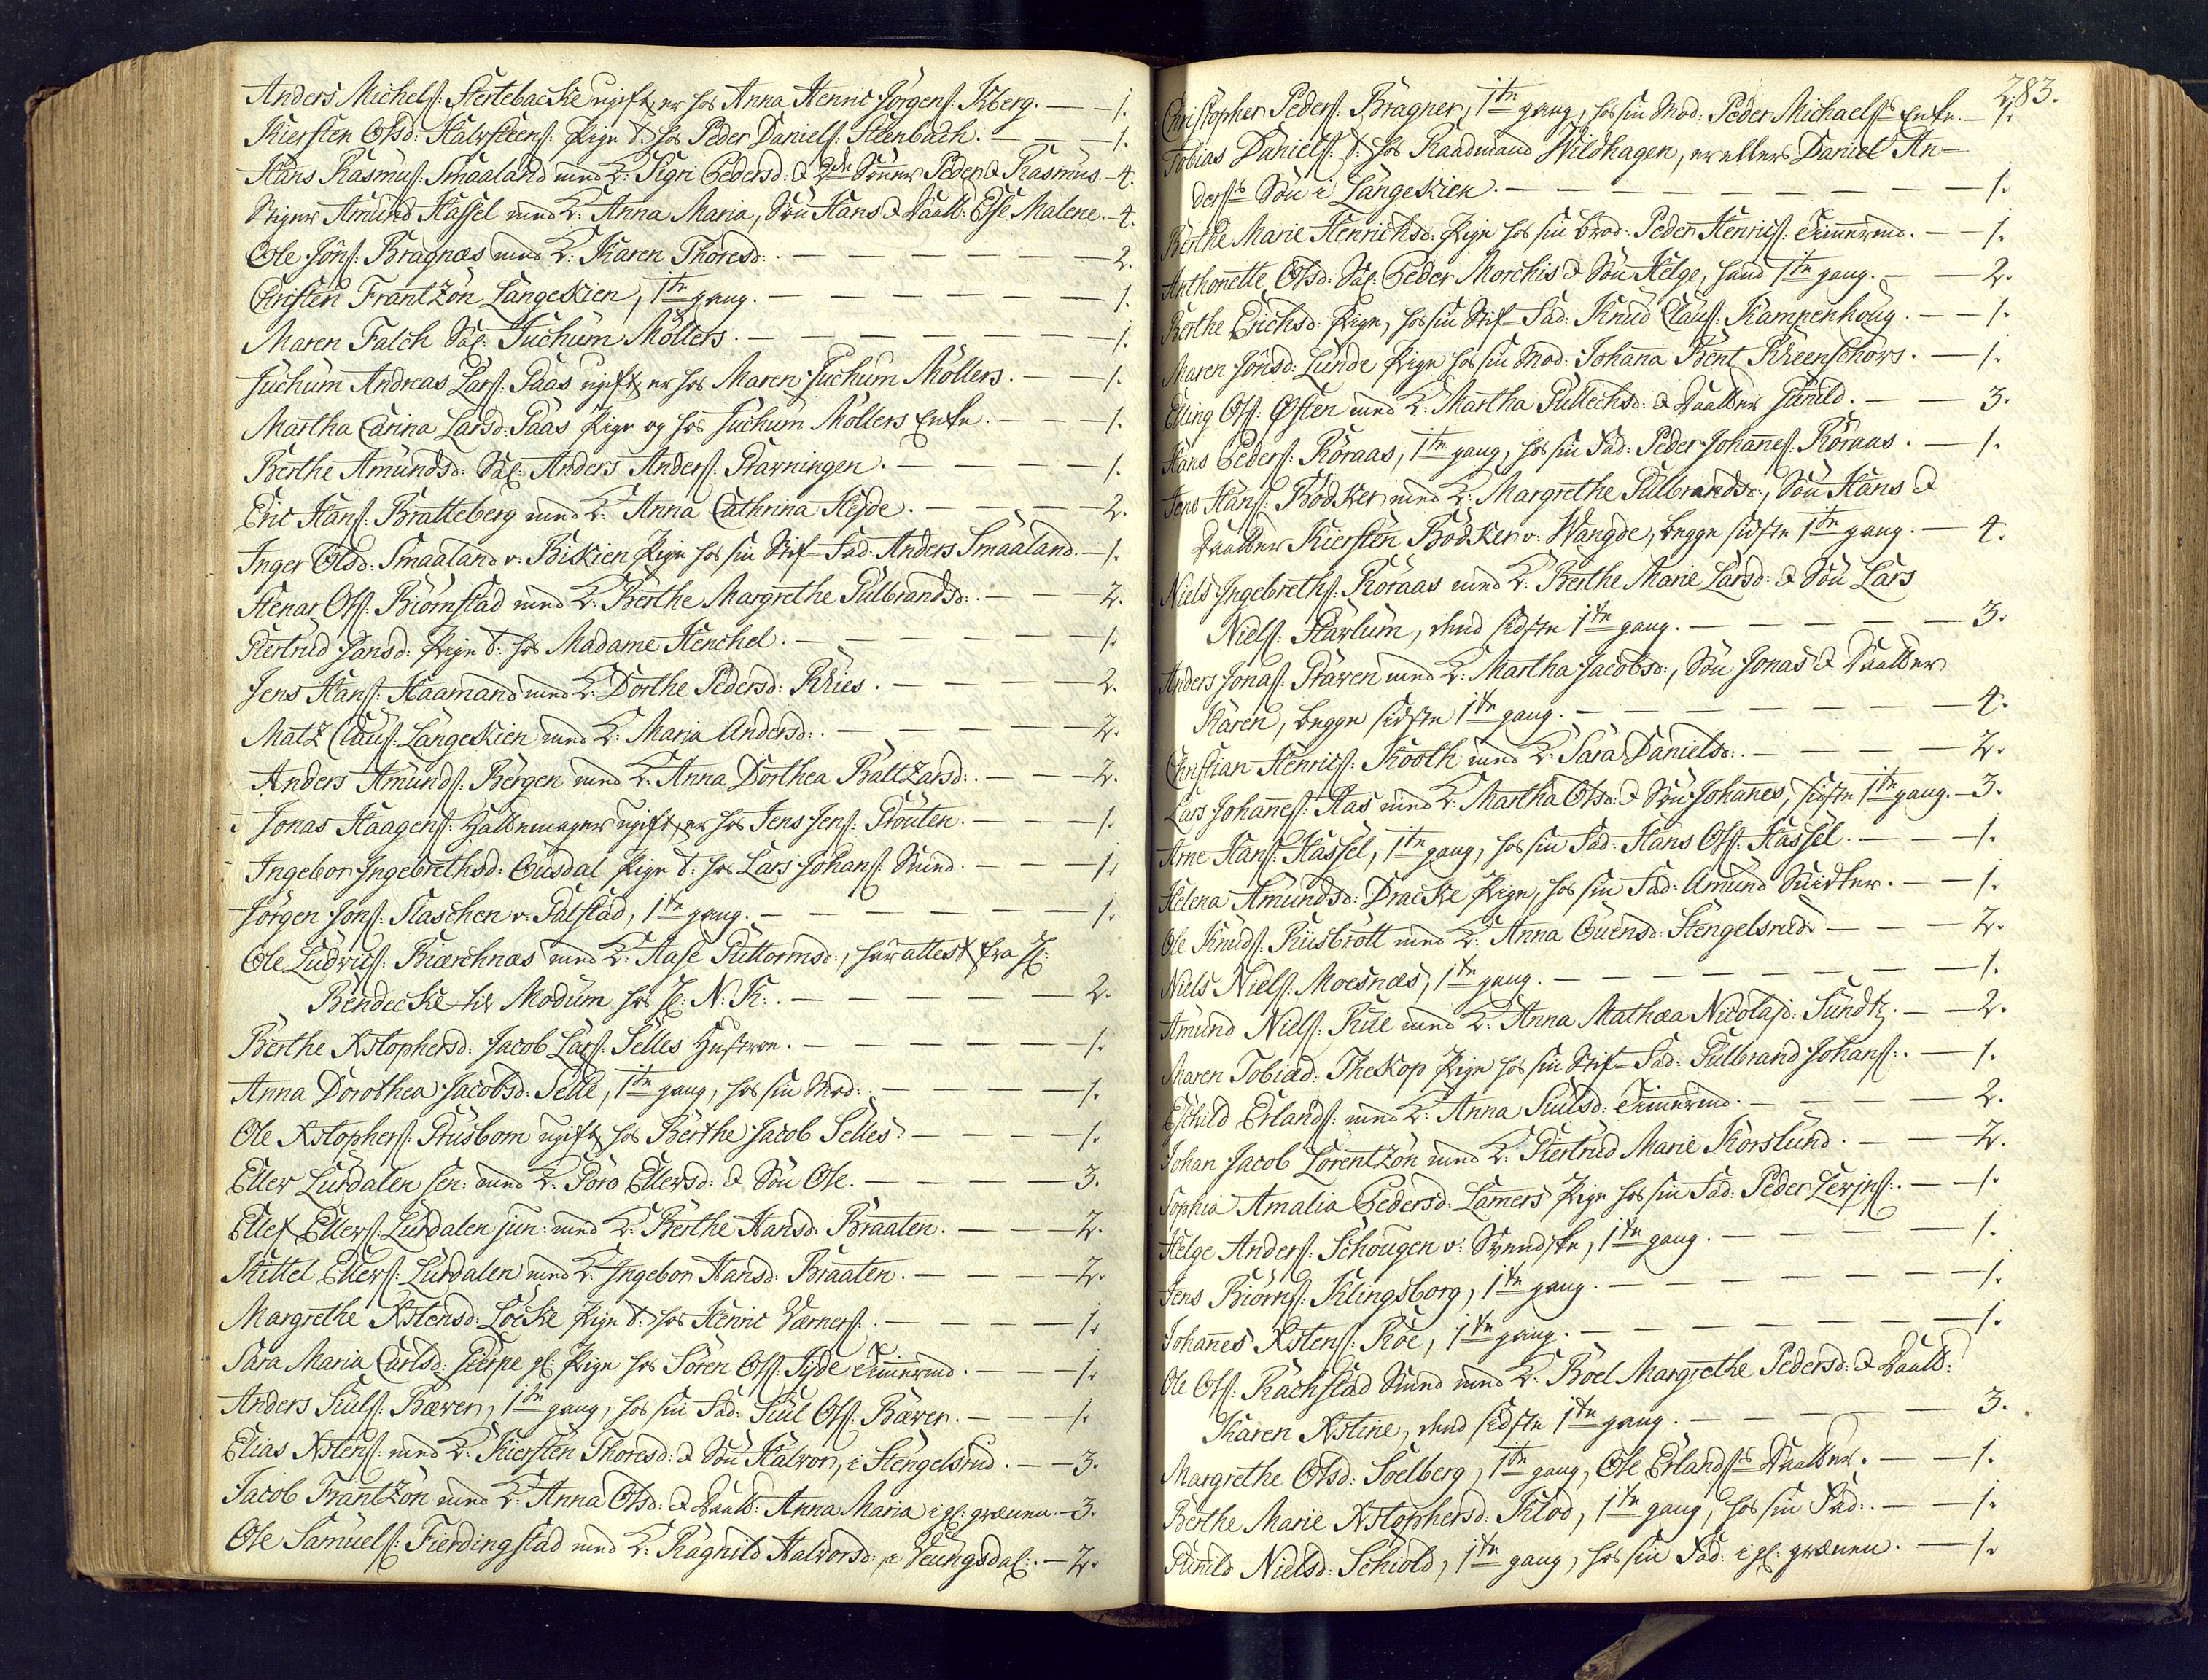 Anders Michels: Stertebacke ugift, er hos Anna Henric Jörgens: Kberg. — 1.
Kiersten Olsd: Halvsteens: Pige t: hos Peder Daniels: Steenbach. — 1.
Hans Rasmus: Smaaland med K: Sigri Pedersd: & 2de Sönner Peder & Rasmus. — 4.
Stiger Amund Hassel med K: Anna Maria, Sön Hans & Daatt: Else Malene. — 4.
Ole Jöns: Bragnæs med K: Karen Thoresd: — 2.
Christen Frantzön Langeskien, 1te gang. — 1.
Maren Falch Sal: Juchum Möllers. — 1.
Juchum Andreas Lars: Paas ugift, er hos Maren Juchum Möllers. — 1.
Martha Carina Larsd: Paas Pige og hos Juchum Möllers Enke. — 1.
Berthe Amundsd: Sal: Anders Anders: Gravningen. — 1.
Eric Hans: Bratteberg med K: Anna Cathrina Hejde. — 2.
Inger Olsd: Smaaland v: Biskien Pige hos sin Stif-Fad: Anders Smaaland. — 1.
Stenar Ols: Biörnstad med K: Berthe Margrethe Gulbrandsd: — 2.
Giertrud Jansd: Pige t: hos Madame Henchel. — 1.
Jens Hans: Haamand med K: Dorthe Pedersd: Kries. — 2.
Matz Claus: Langeskien med K: Maria Andersd: — 2.
Anders Amunds: Bergen med K: Anna Dorthea Baltzarsd: — 2.
Jonas Haagens: ugift, er hos Jens Jens: Gröuten. — 1.
Ingebor Ingebrethsd: Ousdal Pige t: hos Lars Johans: Smed. — 1.
Jörgen Jons: Flaschen v: Galstad, 1te gang. — 1.
Ole Ludvics: Biærchnæs med K: Aase Guttormsd:, har attest fra H:
Bendecke til Modum hos H: N: K: — 2.
Berthe Xstophersd: Jacob Lars: Selles Hustroe. — 1.
Anna Dorothea Jacobsd: Selle, 1te gang, hos sin Mod: — 1.
Ole Xstophers: Grüsbom ugift, hos Berthe Jacob Selles. — 1.
Ellev Lurdalen sen: med K: Goro Ellevsd: & Sön Ole. — 3.
Ellef Ellevs: Lurdalen jun: med K: Berthe Hansd: Braaten. — 2.
Kittel Ellevs: Lurdalen med K: Ingebor Hansd: Braaten. — 2.
Margrethe Xstensd: Löcke Pige t: hos Henric Værners: — 1.
Sara Maria Carlsd: gl: Pige hos Sören Ols: Jyde Timmermd. — 1.
Anders Siuls: Bæver, 1te gang, hos sin Fad: Siul Ols: Bæver. — 1.
Elias Xstens: med K: Kiersten Thoresd: & Sön Halvor, i Stengelsrud. — 3.
Jacob Frantzön med K: Anna Olsd: & Daatt: Anna Maria i gl: gruen. — 3.
Ole Samuels: Fierdingstad med K: Ragnild Halvorsd:, i Veungsdal: — 2.
283.
Christopher Peders: Bragner, 1te gang, hos sin Mod: Peder Michaelss Enke. — 1.
Tobias Daniels: t: hos Raadmand Wildhagen, er ellers Daniel An-
derss Sön i Langeskien. — 1.
Berthe Marie Henrichsd: Pige hos sin brod: Peder Henrics: Timmermd. — 1.
Anthonette Olsd: Sal: Peder Morchis & Sön Helge, hand 1te gang. — 2.
Berthe Erichsd: Pige, hos sin Stif-Fad: Knud Claus: Kampenhoug. — 1.
Maren Jönsd: Lunde Pige hos sin Mod: Johana Bent Kreenschovs. — 1.
Elling Ols: Östen med K: Martha Gullechsd: & Daatter Gunild. — 3.
Hans Peders: Röraas, 1te gang, hos sin Fad: Peder Johannes: Röraas. — 1.
Jens Hans: Bödker med K: Margrethe Gulbrandsd:, Sön Hans &
Daatter Kiersten Bödker v: Wangde, begge sidste 1te gang. — 4.
Niels Ingebreths: Röraas med K: Berthe Marie Larsd: & Sön Lars
Niels: Garlum, dend sidste 1te gang. — 3.
Anders Jonas: Graven med K: Martha Jacobsd:, Sön Jonas & Daatter
Karen, begge sidste 1te gang. — 4.
Christian Henrics: Kooth med K: Sara Danielsd: — 2.
Lars Johannes: Aas med K: Martha Olsd: & Sön Johannes, sidste 1te gang. — 3.
Arne Hans: Hassel, 1te gang, hos sin Fad: Hans Ols: Hassel. — 1.
Helena Amundsd: Dracke Pige, hos sin Fad: Amund Snidker. — 1.
Ole Knuds: Riisbrött med K: Anna Guensd: Stengelsrud. — 2.
Niels Niels: Moesnæs, 1te gang. — 1.
Amund Niels: Kiie med K: Anna Mathæa Nicolajd: Sundtz. — 2.
Maren Tobiæd: Thekop Pige hos sin Stif-Fad: Gulbrand Johans: — 1.
Eschild Erlands: med K: Anna Siulsd: Timmermd. — 2.
Johan Jacob Lorentzön med K: Giertrud Marie Korslund. — 2.
Sophia Amalia Pedersd: Lamers Pige hos sin Fad: Peder Zerjns: — 1.
Helge Anders: Schougen v: Svendske, 1te gang. — 1.
Jens Biörns: Klingsborg, 1te gang. — 1.
Johannes Xstens: Roe, 1te gang. — 1.
Ole Ols: Rachstad Smed med K: Boel Margrethe Pedersd: & Daatt:
Karen Xstine, dend sidste 1te gang. — 3.
Margrethe Olsd: Soelberg, 1te gang, Ole Erlandss Daatter. — 1.
Berthe Marie Xstophersd: Klod, 1te gang, hos sin Fad: — 1.
Gunild Nielsd: Schiold, 1te gang, hos sin Fad: i gl: gruen. — 1.